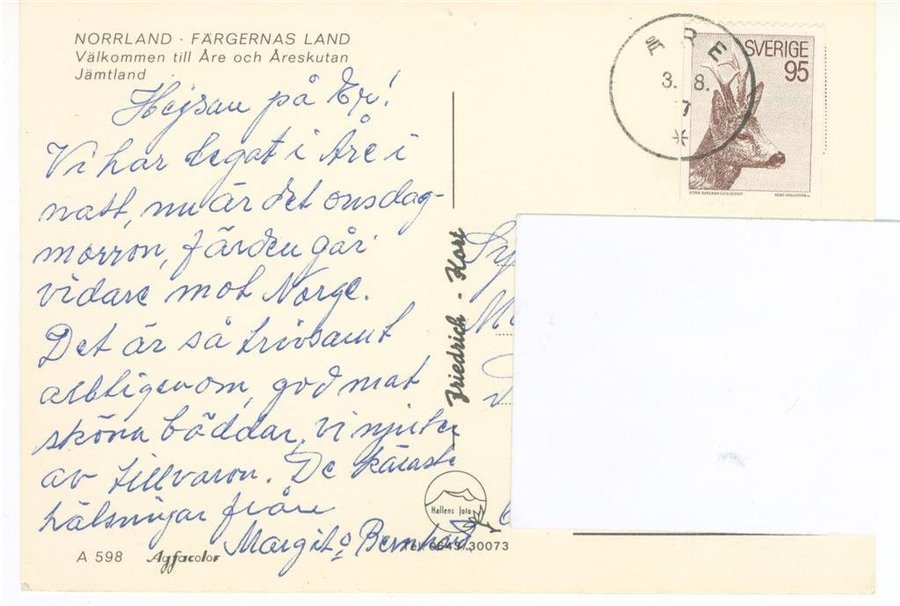 NORRLAND - FÄRGERNAS LAND
Välkommen till Åre och Åreskutan
Jämtland
Hejsan på Er!
Vi har legat i Åre i
natt, nu är det onsdag-
morron, färden går
vidare mot Norge.
Det är så trivsamt
alltigenom, god mat
sköna bäddar, vi njuter
av tillvaron. De käraste
hälsningar från
Margit o Bernhard
A 598 Agfacolor
Friedrich - Kort
Hallens foto
30073
ÅRE
3. 8.
7
SVERIGE
95